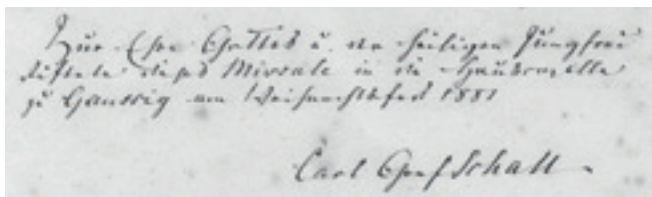 Zur Ehre Gottes u. der heiligen Jungfrau
stiftete dieses Missale in die Hauskapelle
zu Gaussig am Weihnachtsfest 1881
Carl Graf Schall